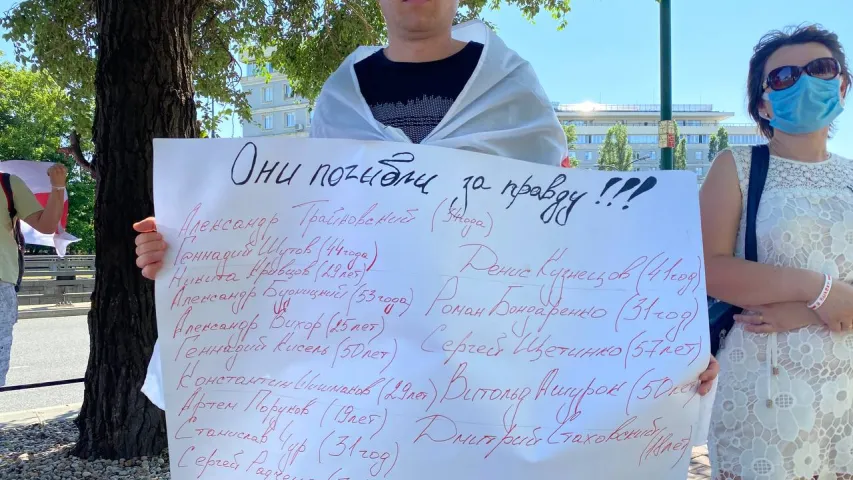 Они погибли за правду!!!
Александр Трайковский (34года)
Геннадий Шутов (44года)
Никита Кривцов (29лет)
Александр Будницкий (53года)
Александр Вихор (25лет)
Геннадий Кисель (50лет)
Константин Шишмаков (29лет)
Артем Паруков (19лет)
Станислав Чур (31год)
Сергей
Денис Кузнецов (41год)
Роман Бондаренко (31год)
Сергей Щетинко (57лет)
Витольд Ашурок (50лет)
Дмитрий Стаховский (18лет)